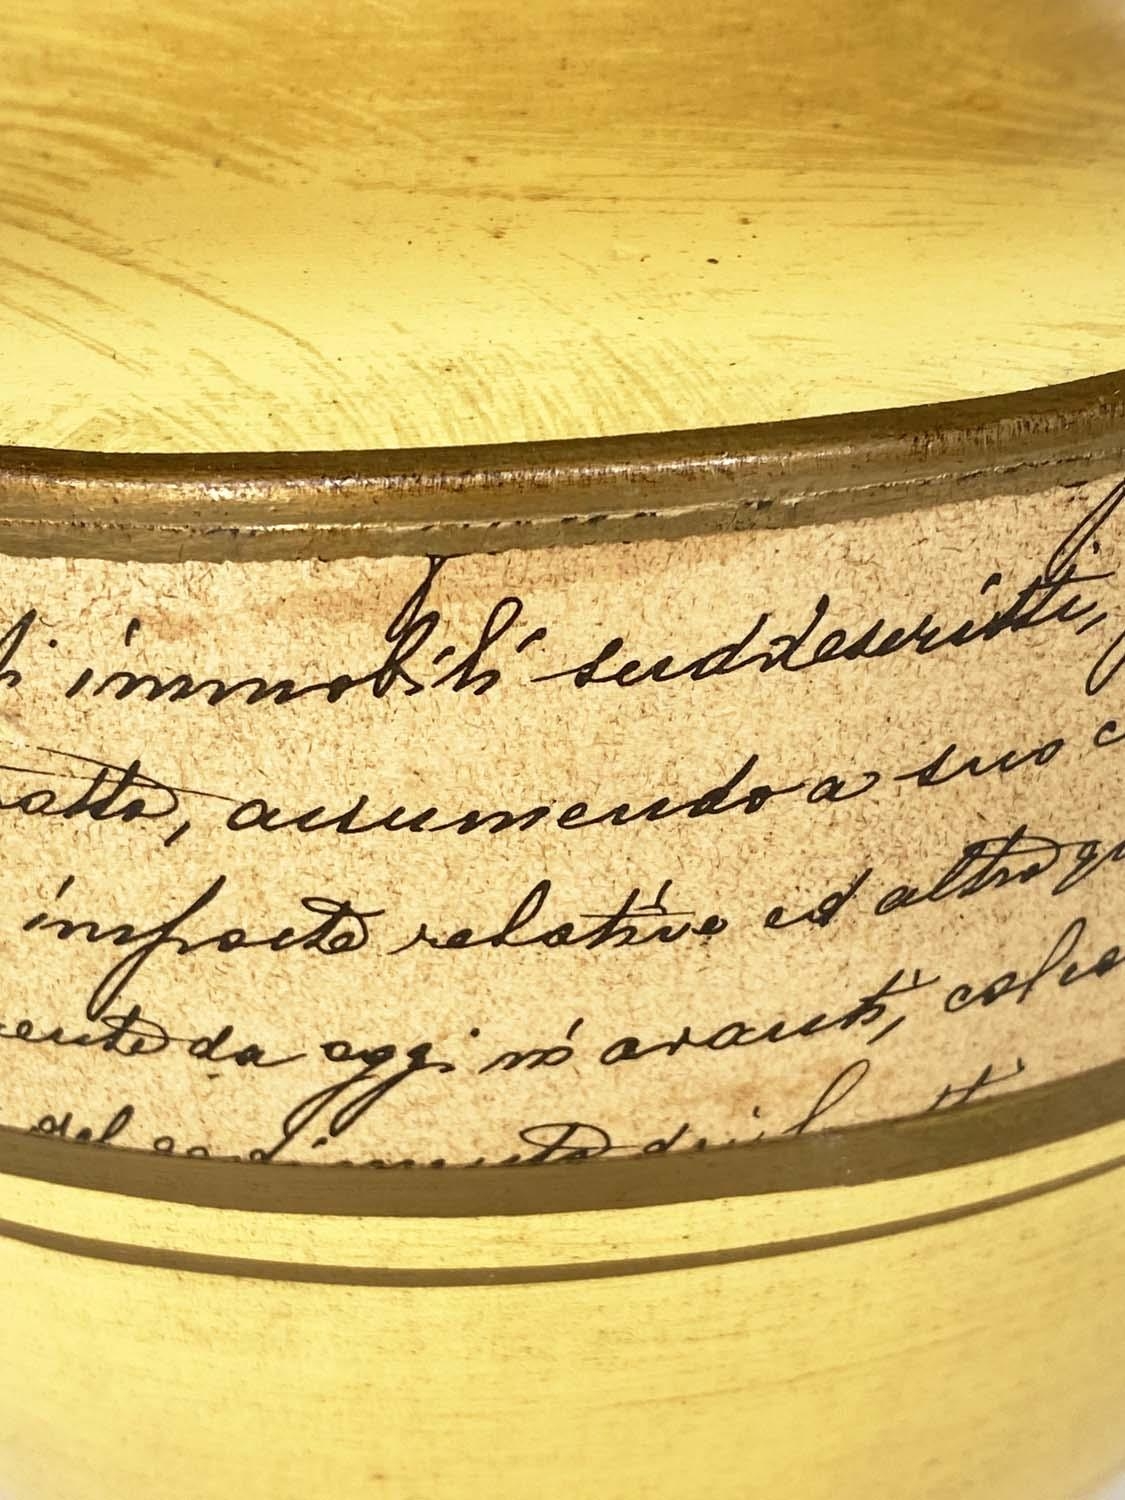 immobili suddescritti,
atto, assumendo a suo
imposte relative ed altre
mente da oggi in avanti,
del